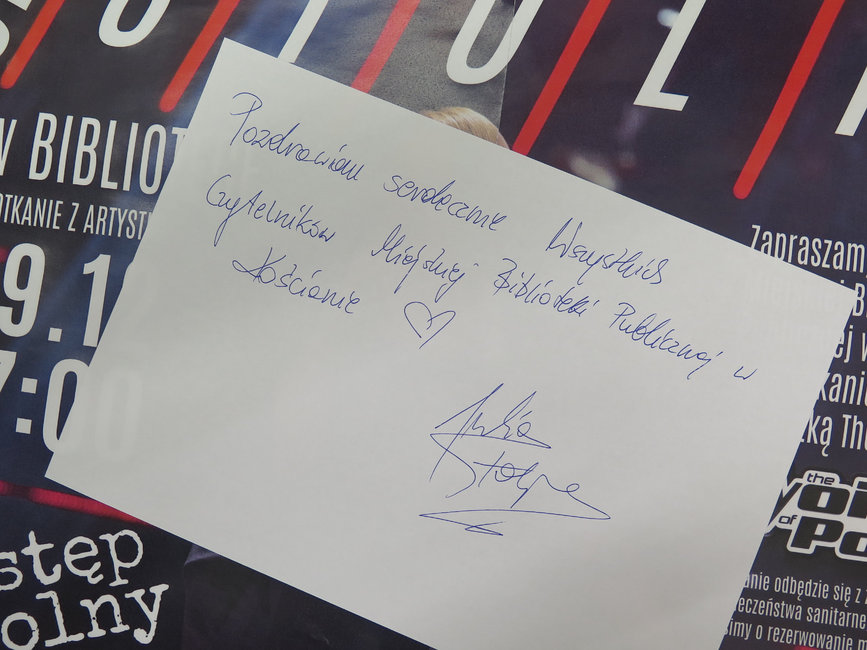 STOL
W BIBLIOT
OTKANIE Z ARTYST
9.1
7:00
stęp
olny
Pozdrawiam serdecznie Wszystkich
Czytelników Miejskiej Biblioteki Publicznej w
Kościanie ♡
Julia
Stolpe
Zapraszam
ej w
kanie
zką The
the
Voi
of
Po
anie odbędzie się z
eczeństwa sanitarne
simy o rezerwowanie m